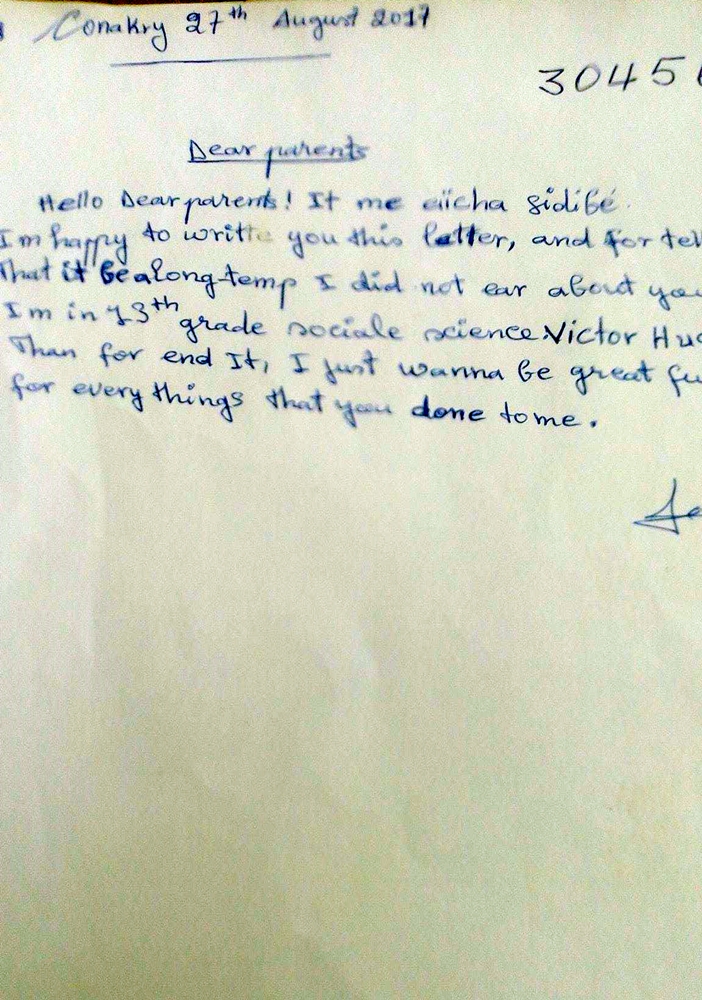 Conakry 27th August 2017
30456
Dear parents
Hello Dear parents! It me aïcha Sidibé.
I m happy to writte you this letter, and for tell
That it be a long-temp I did not ear about you
I m in 13th grade sociale science Victor Hug
Than for end It, I just wanna be great fu
for every things that you done to me.